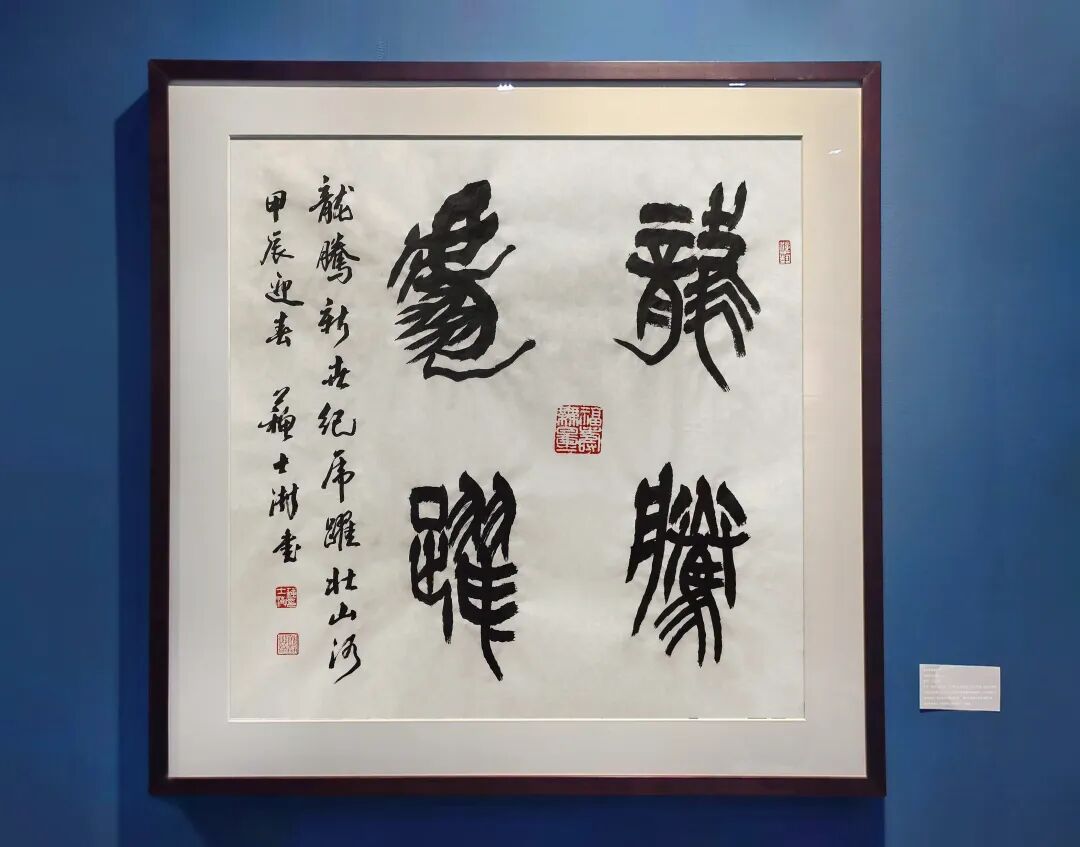 龍騰
虎躍
龍騰新世紀虎躍壯山河
甲辰迎春 蘇士澍書
福壽無量